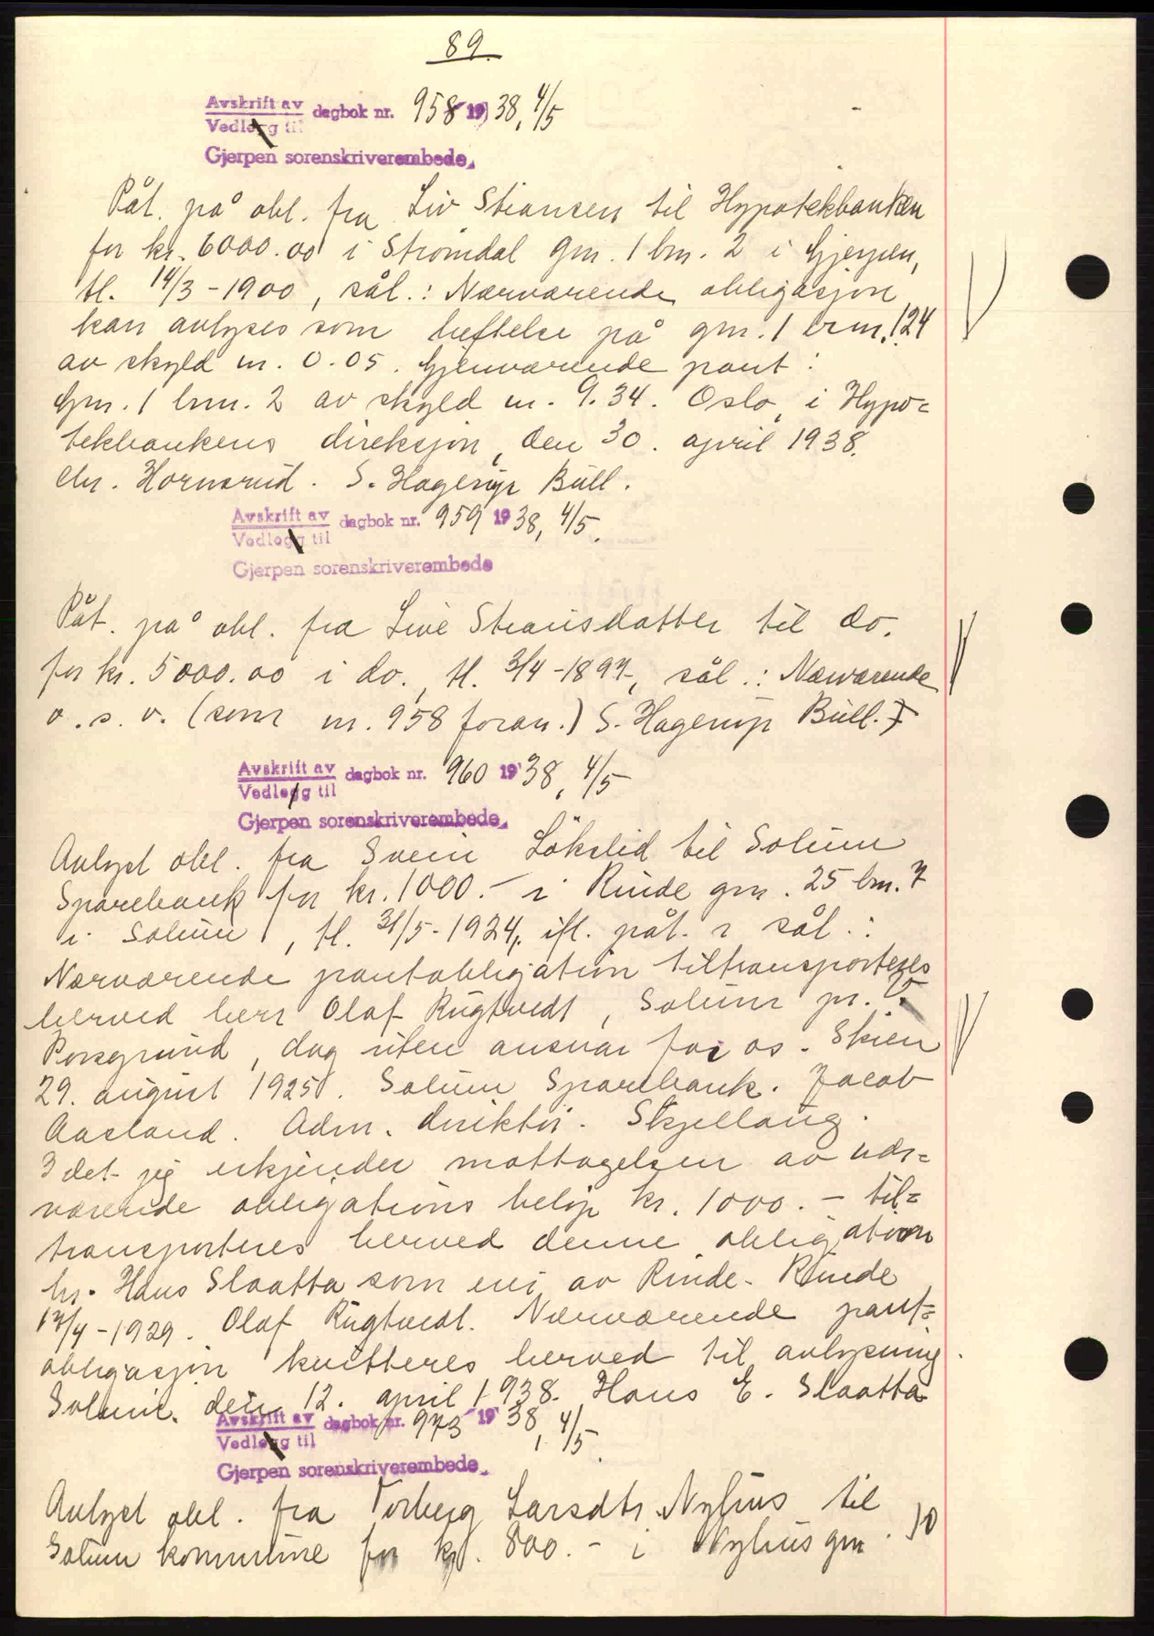 89.
Avskrift av
Vedlegg til
dagbok nr. 958 1938, 4/5
Gjerpen sorenskriverembede.
Påt. på obl. fra Liv Stiansen til Hypotekbanken
for kr. 6000.00 i Strømdal gnr. 1 bnr. 2 i Gjerpen,
tl. 14/3-1900, sål.: Nærværende obligasjon
kan avlyses som heftelse på gnr. 1 brnr. 124
av skyld m. 0.05. Gjenværende pant:
Gnr. 1 bnr. 2 av skyld m. 9.34. Oslo, i Hypo=
tekbankens direksjon, den 30. april 1938.
Chr. Hornsrud. S. Hagerup Bull.
Avskrift av
Vedlegg til
dagbok nr. 959 1938, 4/5.
Gjerpen sorenskriverembede
Påt. på obl. fra Live Stiansdatter til do.
for kr. 5000.00 i do., tl. 3/4-1897, sål.: Nærværende
o.s.v. (som nr. 958 foran.) S. Hagerup Bull.
Avskrift av
Vedlegg til
dagbok nr. 960 1938, 4/5
Gjerpen sorenskriverembede.
Avlyst obl. fra Svein Løkslid til Solum
Sparebank for kr. 1000.- i Rinde gnr. 25 bnr. 7
i Solum, tl. 31/5-1924, ifl. påt. sål.:
Nærværende pantobligation tiltransporteres
herved herr Olaf Rugtvedt, Solum pr.
Porsgrund, dog uten ansvar for os. Skien
29. august 1925. Solum Sparebank. Jacob
Aasland. Adm. direktør. Skjellaug.
I det jeg erkjender mottagelsen av nær=
værende obligations beløp kr. 1000.- til=
transporteres herved denne obligation
hr. Hans Slaatta som eier av Rinde. Rinde
12/4-1929. Olaf Rugtvedt. Nærværende pant=
obligasjon kvitteres herved til avlysning.
Solum, den 12. april 1938. Hans E. Slaatta
Avskrift av
Vedlegg til
dagbok nr. 973 1938, 4/5.
Gjerpen sorenskriverembede.
Avlyst obl. fra Torberg Larsdtr. Nyhus til
Solum kommune for kr. 800.- i Nyhus gnr. 10